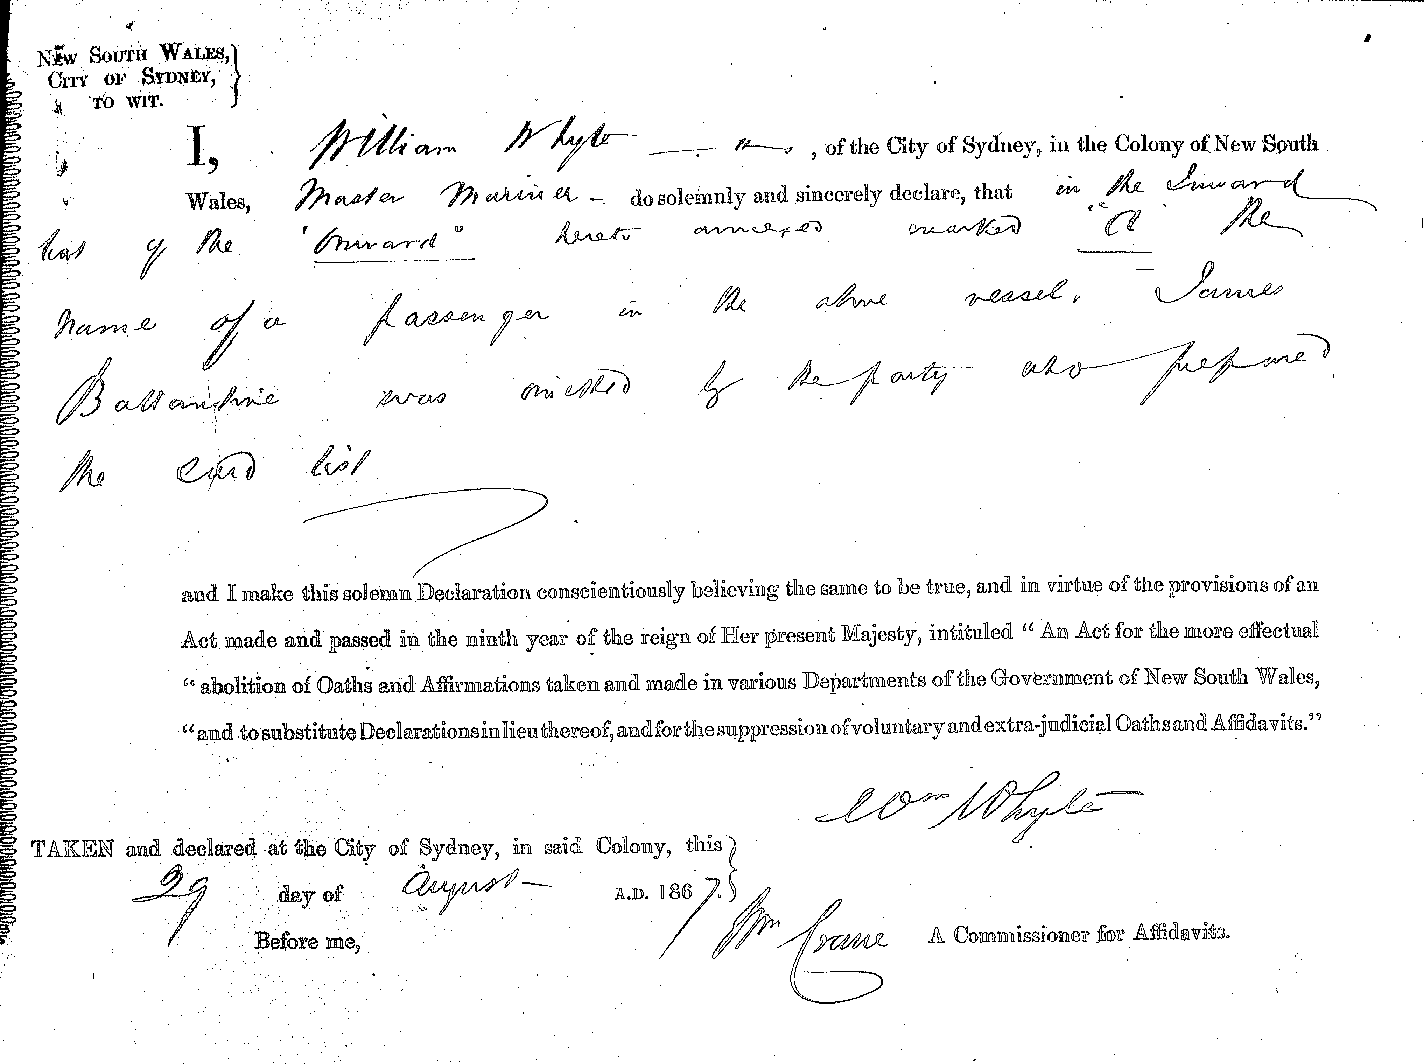 NEW SOUTH WALES,
CITY OF SYDNEY,
TO WIT.
I, William Whyte , of the City of Sydney, in the Colony of New South
Wales, Master Mariner - do solemnly and sincerely declare, that in the Inward
list of the "Onward" hereto annexed marked "A" the
name of a passenger in the above vessel, James
Ballantine was omitted by the party who prepared
the said list
and I make this solemn Declaration conscientiously believing the same to be true, and in virtue of the provisions of an
Act made and passed in the ninth year of the reign of Her present Majesty, intituled “ An Act for the more effectual
“ abolition of Oaths and Affirmations taken and made in various Departments of the Government of New South Wales,
“ and to substitute Declarations in lieu thereof, and for the suppression of voluntary and extra-judicial Oaths and Affidavits.”
Wm Whyte
TAKEN and declared at the City of Sydney, in said Colony, this
29 day of August A.D. 1867.
Before me, Wm Crane A Commissioner for Affidavits.